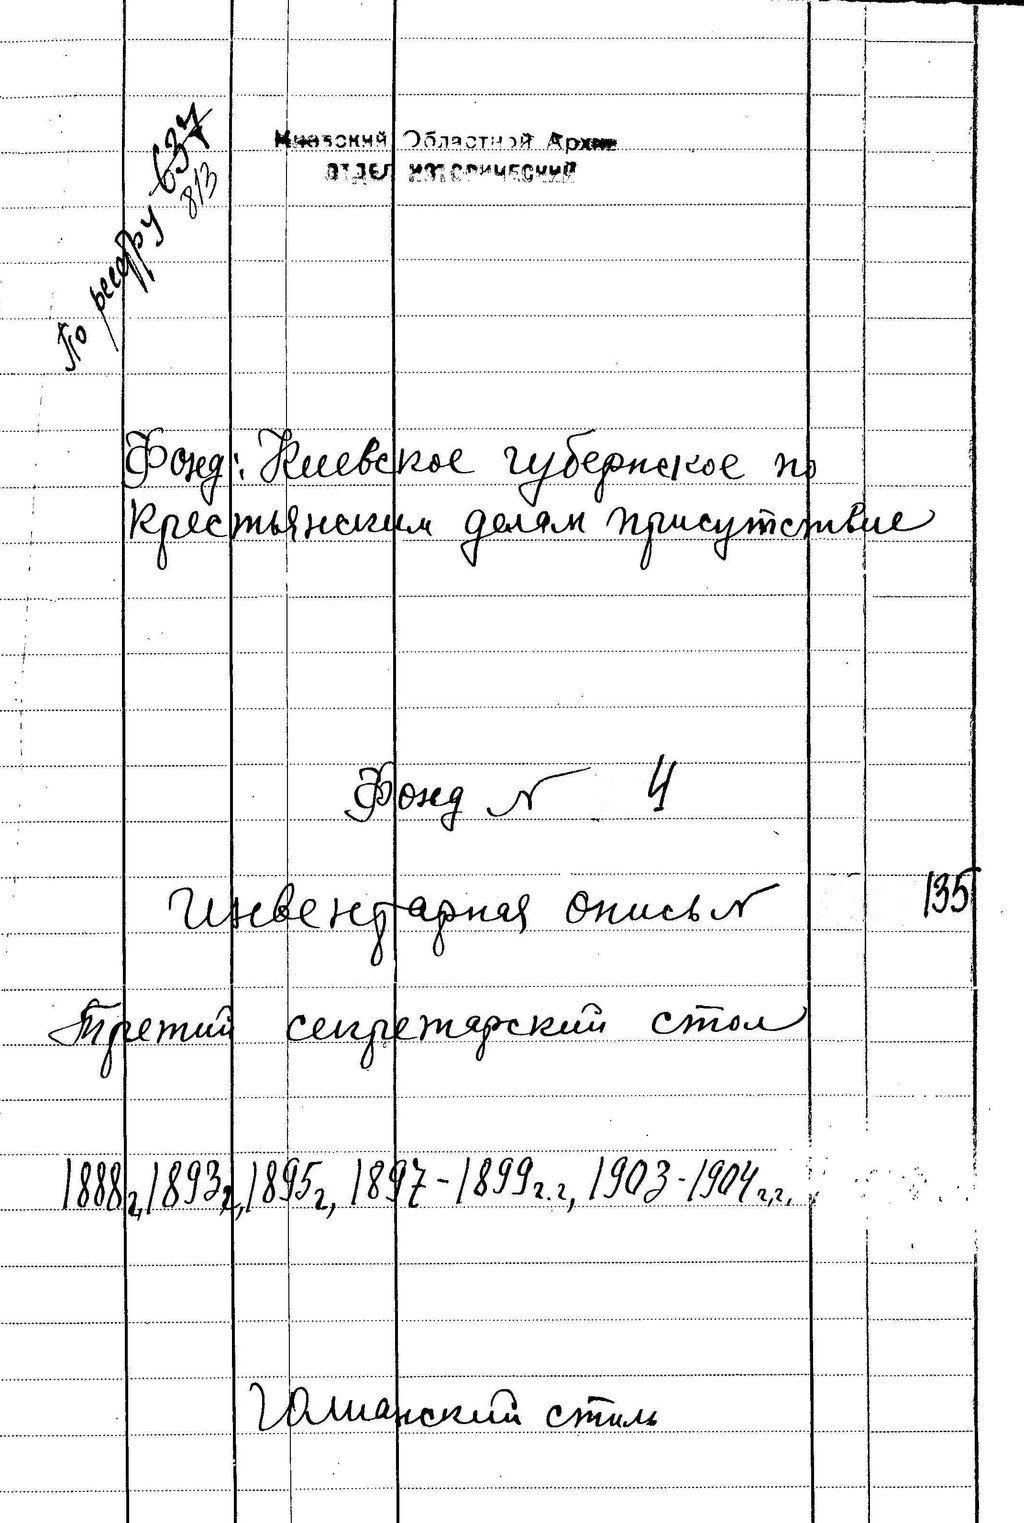 По реестру 637
813
Киевский Областной Архив
ОТДЕЛ ИСТОРИЧЕСКИЙ
Фонд: Киевское губернское по
крестьянским делам присутствие
Фонд № 4
Инвентарная опись № 135
Третий секретарский стол
1888г, 1893г, 1895г, 1897-1899г.г, 1903-1904г.г.
Юлианский стиль